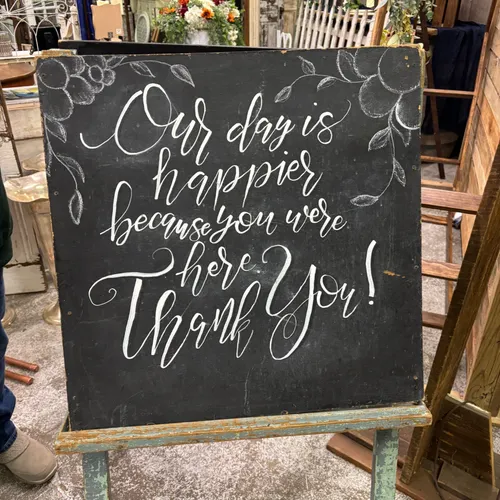 Our day is
happier
because you were
here
Thank You!